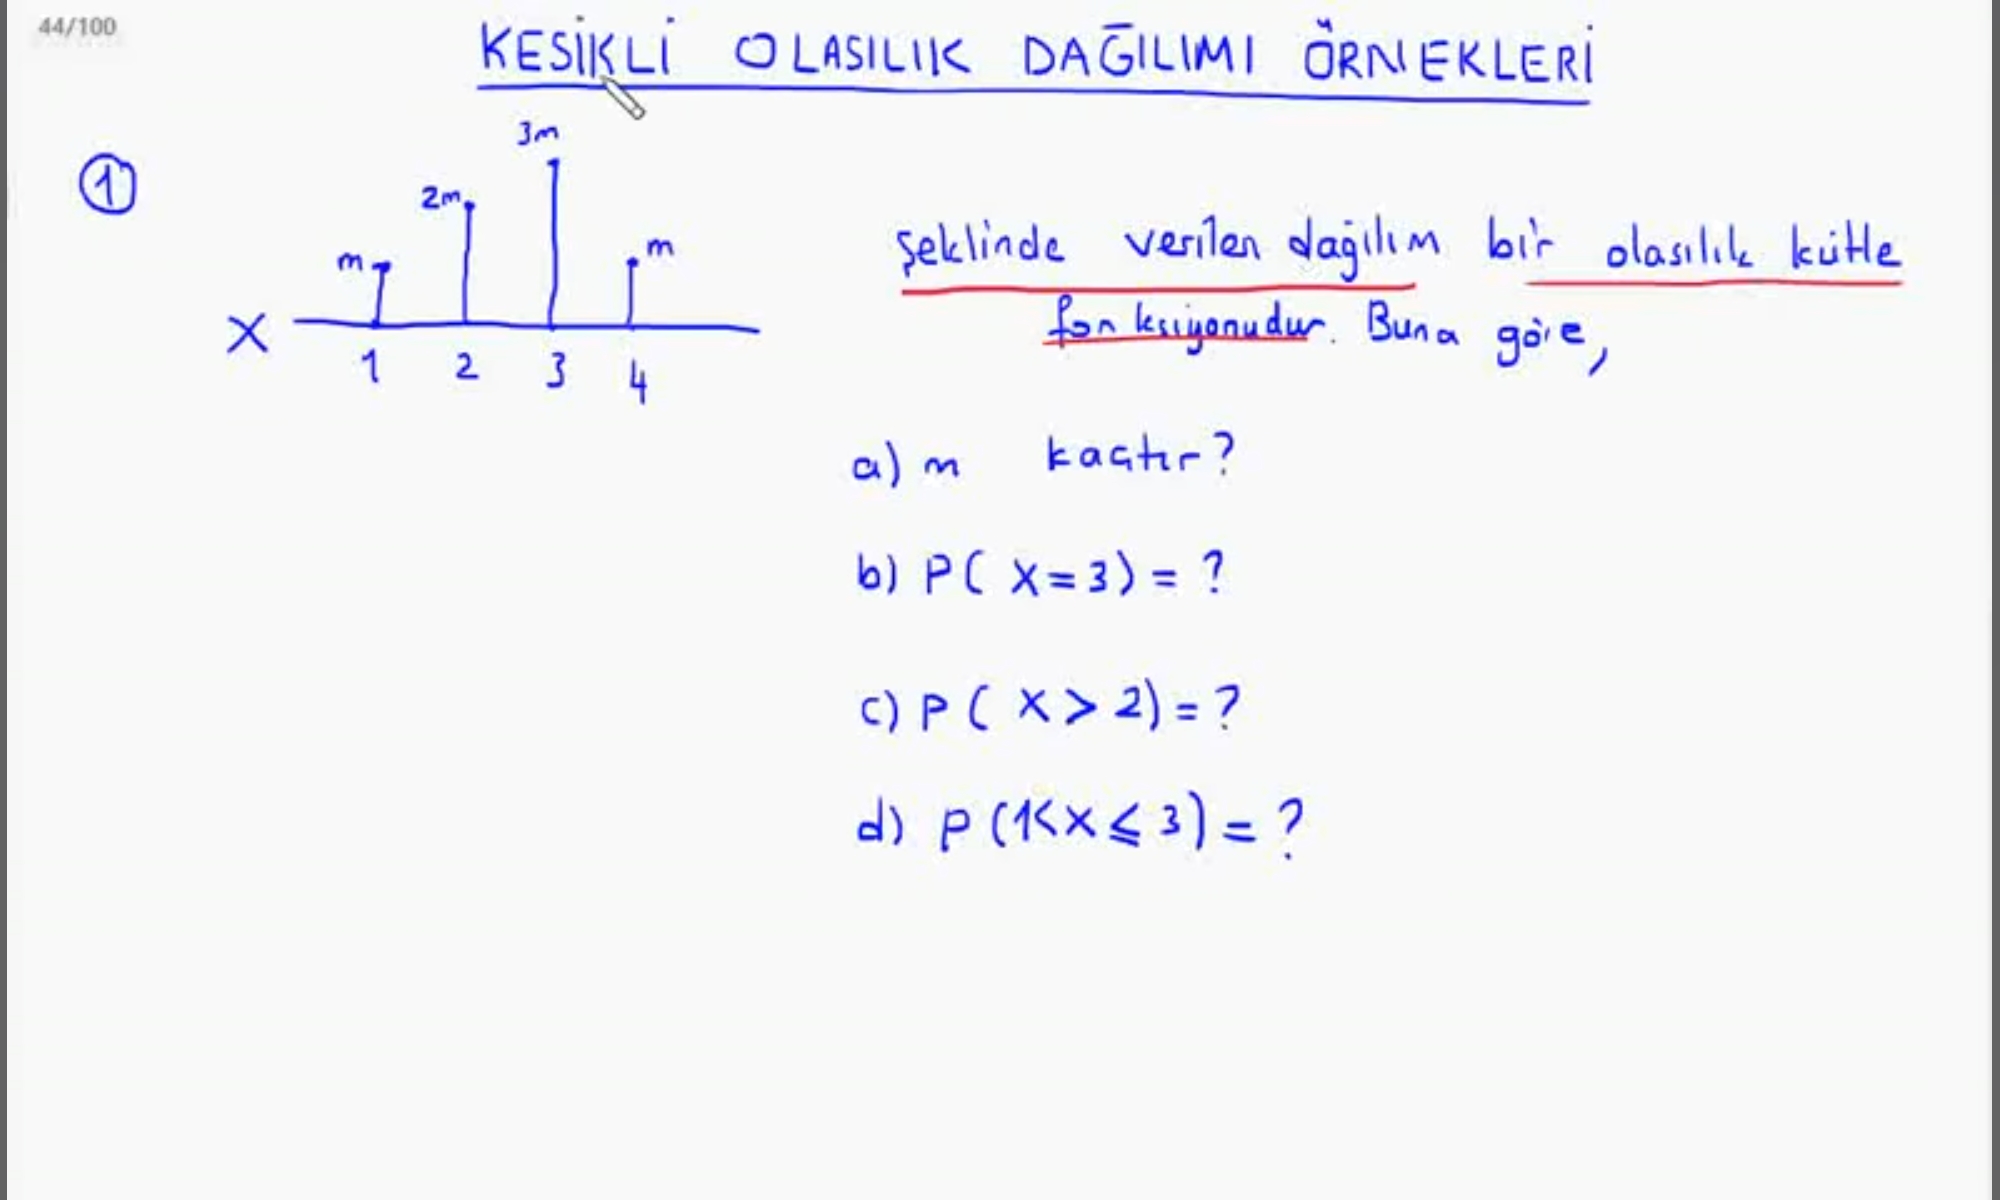 44/100
KESİKLİ OLASILIK DAĞILIMI ÖRNEKLERİ
1
3m
2m
m
m
X
1 2 3 4
şeklinde verilen dağılım bir olasılık kütle
fonksiyonudur. Buna göre,
a) m kaçtır?
b) P( X=3) = ?
c) P( X > 2) = ?
d) P(1<X⩽3) = ?